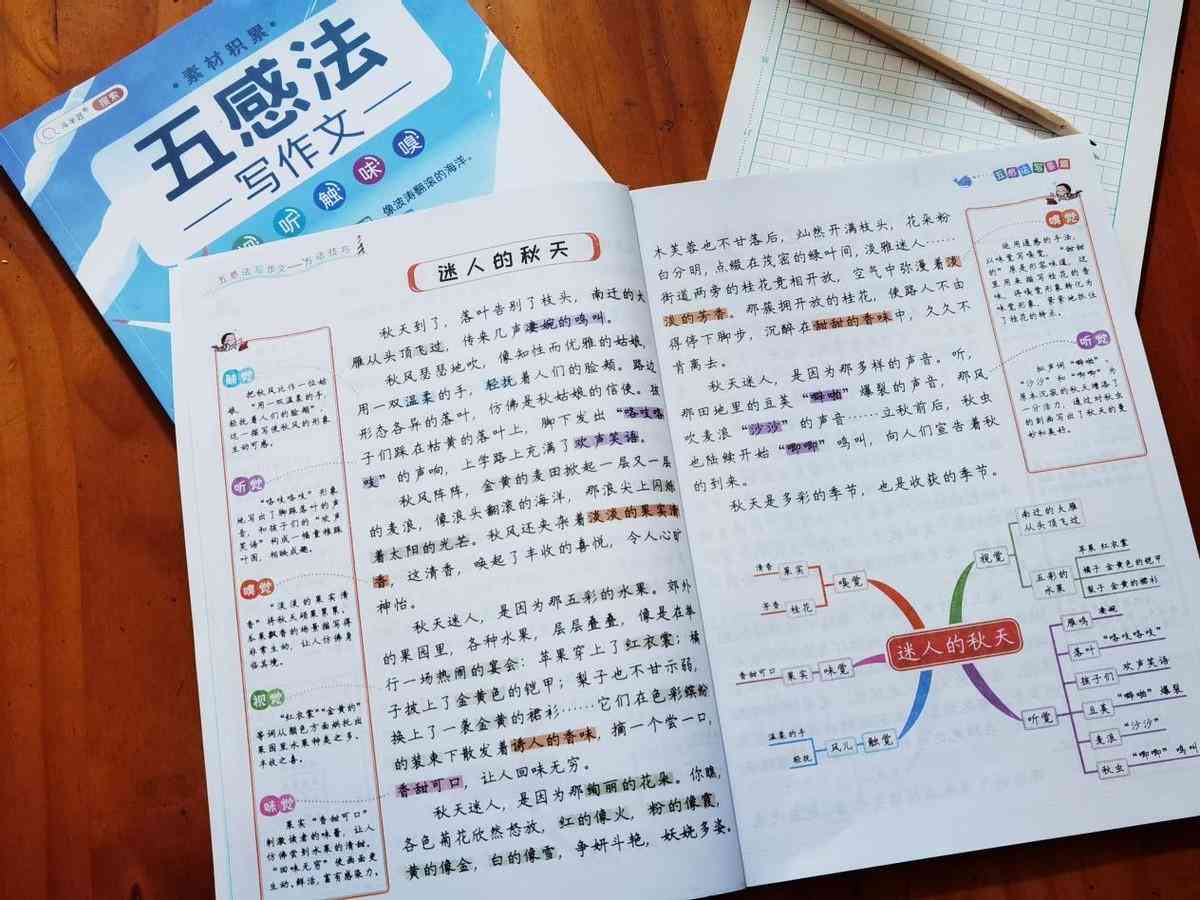 素材积累
五感法
写作文
听 触 味 嗅
像波涛翻滚的海洋。
五感法写作文——方法技巧
迷人的秋天
秋天到了，落叶告别了枝头，南迁的大
雁从头顶飞过，传来几声凄婉的鸣叫。
秋风瑟瑟地吹，像知性而优雅的姑娘，
用一双温柔的手，轻抚着人们的脸颊。路边
形态各异的落叶，仿佛是秋姑娘的信使。孩
子们踩在枯黄的落叶上，脚下发出“咯吱咯
吱”的声响，上学路上充满了欢声笑语。
秋风阵阵，金黄的麦田掀起一层又一层
的麦浪，像浪头翻滚的海洋，那浪尖上闪烁
着太阳的光芒。秋风还夹杂着淡淡的果实清
香，这清香，唤起了丰收的喜悦，令人心旷
神怡。
秋天迷人，是因为那五彩的水果。郊外
的果园里，各种水果，层层叠叠，像是在举
行一场热闹的宴会：苹果穿上了红衣裳；橘
子披上了金黄色的铠甲；梨子也不甘示弱，
换上了一袭金黄的裙衫……它们在色彩缤纷
的装束下散发着诱人的香味，摘一个尝一口，
香甜可口，让人回味无穷。
秋天迷人，是因为那绚丽的花朵。你瞧，
各色菊花欣然怒放，红的像火，粉的像霞，
黄的像金，白的像雪，争妍斗艳，妖娆多姿。
触觉
把秋风比作一位姑
娘，“用一双温柔的手，
轻抚着人们的脸颊”，
这一描写使秋风的形象
生动可感。
听觉
“咯吱咯吱”形象
地写出了脚踩落叶的声
音，和孩子们的“欢声
笑语”构成一幅童稚踩
叶图，相映成趣。
嗅觉
“淡淡的果实清
香”将秋天硕果累累、
瓜果飘香的场景描写得
非常生动，让人仿佛身
临其境。
视觉
“红衣裳”“金黄的”
等词从颜色方面烘托出
果园里水果种类之多、
丰收之喜。
味觉
果实“香甜可口”
刺激读者的味蕾，让人
仿佛尝到水果的清甜。
“回味无穷”使画面更
生动、鲜活，富有感染力。
木芙蓉也不甘落后，灿然开满枝头，花朵粉
白分明，点缀在茂密的绿叶间，淡雅迷人……
街道两旁的桂花竞相开放，空气中弥漫着淡
淡的芳香。那簇拥开放的桂花，使路人不由
得停下脚步，沉醉在甜甜的香味中，久久不
肯离去。
秋天迷人，是因为那多样的声音。听，
那田地里的豆荚“噼啪”爆裂的声音，那风
吹麦浪“沙沙”的声音……立秋前后，秋虫
也陆续开始“唧唧”鸣叫，向人们宣告着秋
的到来。
秋天是多彩的季节，也是收获的季节。
嗅觉
运用通感的手法，
从味觉写嗅觉，“甜甜
的”原是形容味道，这
里用来描写桂花的香
味，将嗅觉形象转化为
味觉形象，紧紧地抓住
了桂花的特点。
听觉
拟声词“噼啪”
“沙沙”和“唧唧”为
原本沉寂的秋天增添了
一分活力，通过对秋虫
的刻画写出了秋天的曼
妙和美好。
迷人的秋天
嗅觉
果实
清香
桂花
芳香
味觉
果实
香甜可口
触觉
风儿
温柔的手
轻抚
视觉
南迁的大雁
从头顶飞过
五彩的
水果
苹果 红衣裳
橘子 金黄色的铠甲
梨子 金黄的裙衫
听觉
雁鸣
凄婉
落叶
“咯吱咯吱”
孩子们
欢声笑语
豆荚
“噼啪”爆裂
麦浪
“沙沙”
秋虫
“唧唧”鸣叫